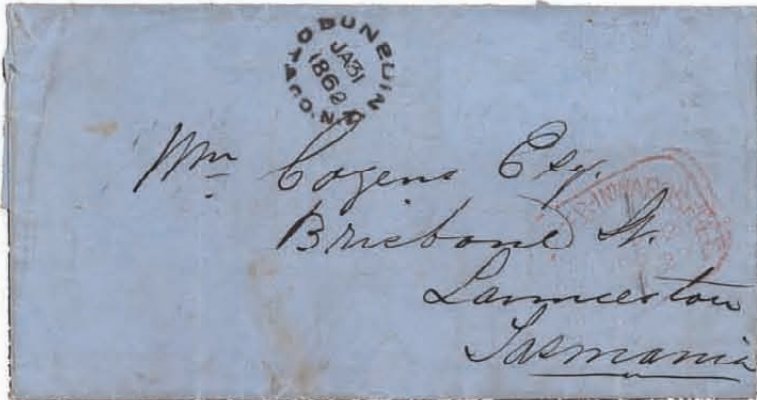 DUNEDIN
JA31
1862
OTAGO.N.Z
Wm Cozens Esq.
Brisbane St.
Launceston
Tasmania